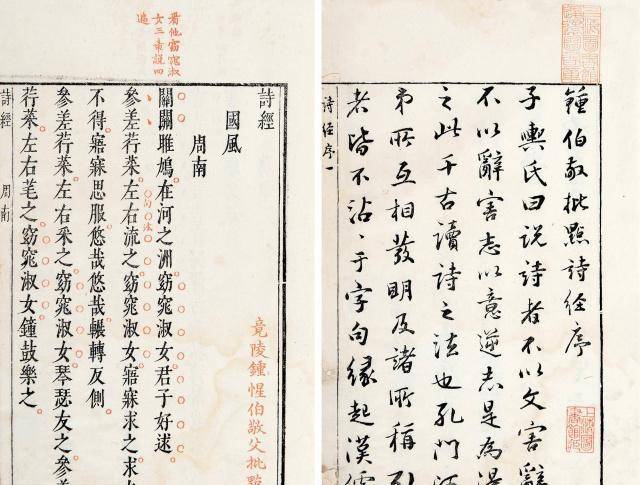 鍾伯敬批點詩經序
子輿氏曰說詩者不以文害辭
不以辭害志以意逆志是為
之此千古讀詩之法也孔門
弟所互相發明及諸所稱引
者皆不沾沾于字句緣起漢
詩經序一
竟陵鍾惺伯敬父批點
詩經
國風
周南
關關雎鳩在河之洲窈窕淑女君子好逑
參差荇菜左右流之窈窕淑女寤寐求之求
句法
不得寤寐思服悠哉悠哉輾轉反側
參差荇菜左右采之窈窕淑女琴瑟友之參
荇菜左右芼之窈窕淑女鐘鼓樂之
看他窈窕淑
女三章說四
遍
詩經 周南